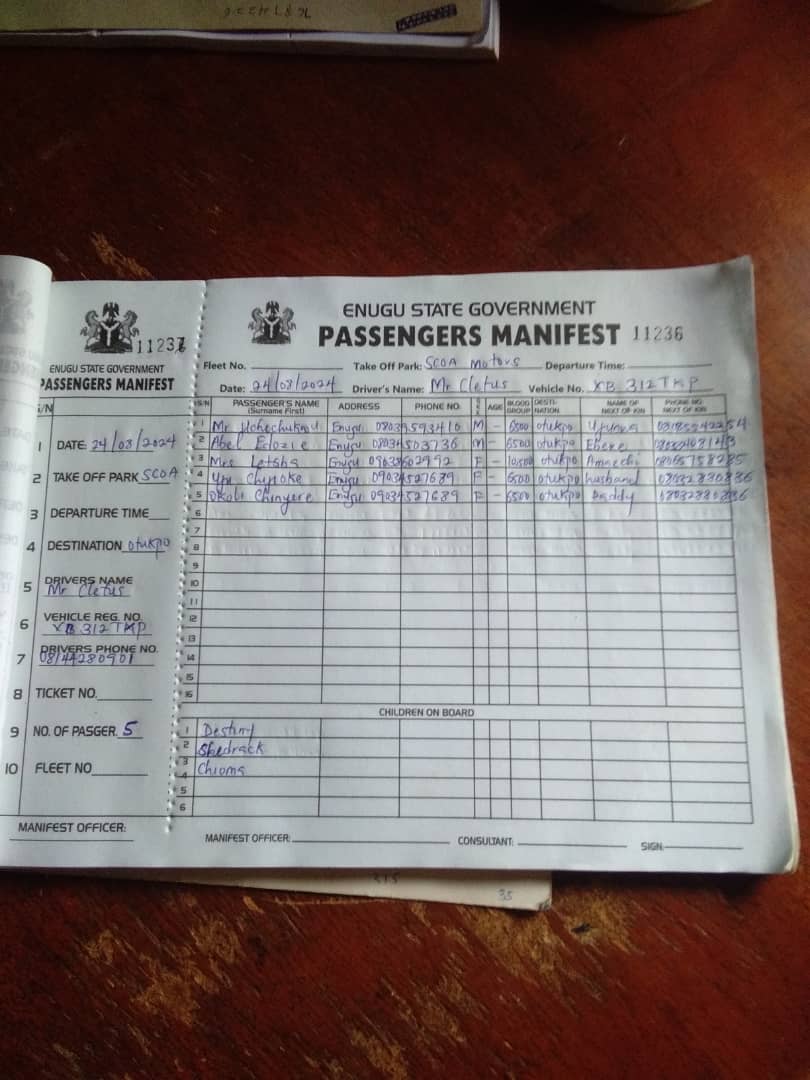 ENUGU STATE GOVERNMENT
PASSENGERS MANIFEST 11236
Fleet No. Take Off Park: SCOA Motors Departure Time:
Date: 24/08/2024 Driver's Name: Mr Cletus Vehicle No. XB 312 TKP
S/N PASSENGER'S NAME (Surname First) ADDRESS PHONE NO. SEX AGE BLOOD GROUP DESTI-NATION NAME OF NEXT OF KIN PHONE NO. NEXT OF KIN
1 Mr Uchechukwu Enugu 08034593410 M - 6500 otukpo
2 Abel Edozie Enugu 08034503736 M - 6500 otukpo Ebere
3 Mrs Enugu F - 10,500 otukpo Amaechi
4 Enugu 09034527689 F - 6500 otukpo husband 08032880836
5 Okoli Chinyere Enugu 09034527689 F - 6500 otukpo Daddy 08032880836
6
7
8
9
10
11
12
13
14
15
16
CHILDREN ON BOARD
1 Destiny
2 Shedrack
3 Chioma
4
5
6
MANIFEST OFFICER: CONSULTANT: SIGN:
11237
ENUGU STATE GOVERNMENT
PASSENGERS MANIFEST
S/N
1 DATE: 24/08/2024
2 TAKE OFF PARK SCOA
3 DEPARTURE TIME
4 DESTINATION otukpo
5 DRIVERS NAME
Mr Cletus
6 VEHICLE REG. NO.
XB 312 TKP
7 DRIVERS PHONE NO.
08144280901
8 TICKET NO.
9 NO. OF PASGER. 5
10 FLEET NO
MANIFEST OFFICER:
35